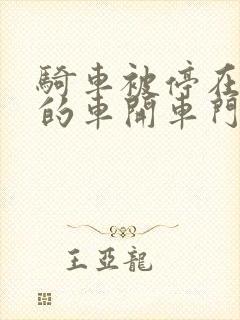 騎車被停在
的車開車門
王亞龍